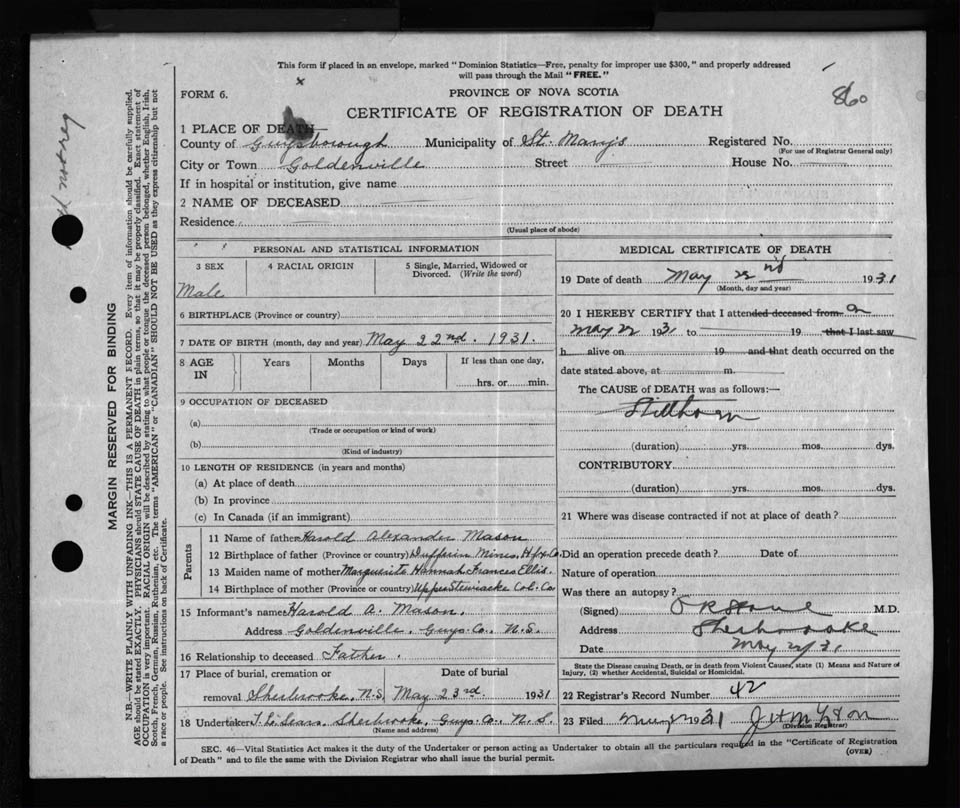 This form if placed in an envelope, marked "Dominion Statistics—Free, penalty for improper use $300," and properly addressed
will pass through the Mail "FREE."
860
FORM 6.
PROVINCE OF NOVA SCOTIA
CERTIFICATE OF REGISTRATION OF DEATH
1 PLACE OF DEATH
County of Guysborough Municipality of St. Mary's Registered No.
(For use of Registrar General only)
City or Town Goldenville Street House No.
If in hospital or institution, give name
2 NAME OF DECEASED
Residence
(Usual place of abode)
PERSONAL AND STATISTICAL INFORMATION
3 SEX 4 RACIAL ORIGIN 5 Single, Married, Widowed or Divorced. (Write the word)
Male
6 BIRTHPLACE (Province or country)
7 DATE OF BIRTH (month, day and year) May 22nd. 1931.
8 AGE IN Years Months Days If less than one day,
hrs. or min.
9 OCCUPATION OF DECEASED
(a)
(Trade or occupation or kind of work)
(b)
(Kind of industry)
10 LENGTH OF RESIDENCE (in years and months)
(a) At place of death
(b) In province
(c) In Canada (if an immigrant)
Parents
11 Name of father Harold Alexander Mason
12 Birthplace of father (Province or country) Dufferin Mines, Hfx Co.
13 Maiden name of mother Marguerite Hannah Frances Ellis.
14 Birthplace of mother (Province or country) Upper Stewiacke Col. Co.
15 Informant's name Harold A. Mason.
Address Goldenville, Guys. Co., N.S.
16 Relationship to deceased Father.
17 Place of burial, cremation or Date of burial
removal Sherbrooke, N.S. May 23rd 1931
18 Undertaker Sears, Sherbrooke, Guys. Co., N.S.
(Name and address)
MEDICAL CERTIFICATE OF DEATH
19 Date of death May 22nd 1931
(Month, day and year)
20 I HEREBY CERTIFY that I attended deceased from on
May 22 1931 to 19 that I last saw
h alive on 19 and that death occurred on the
date stated above, at m.
The CAUSE of DEATH was as follows:—
Stillborn
(duration) yrs. mos. dys.
CONTRIBUTORY
(duration) yrs. mos. dys.
21 Where was disease contracted if not at place of death?
Did an operation precede death? Date of
Nature of operation
Was there an autopsy?
(Signed) M.D.
Address Sherbrooke
Date May 22/31
State the Disease causing Death, or in death from Violent Causes, state (1) Means and Nature of
Injury, (2) whether Accidental, Suicidal or Homicidal.
22 Registrar's Record Number 42
23 Filed 1931
(Division Registrar)
SEC. 46—Vital Statistics Act makes it the duty of the Undertaker or person acting as Undertaker to obtain all the particulars required in the "Certificate of Registration
of Death" and to file the same with the Division Registrar who shall issue the burial permit.
(OVER)
MARGIN RESERVED FOR BINDING
N.B.—WRITE PLAINLY WITH UNFADING INK—THIS IS A PERMANENT RECORD. Every item of information should be carefully supplied.
AGE should be stated EXACTLY. PHYSICIANS should STATE CAUSE OF DEATH in plain terms, so that it may be properly classified. Exact statement of
OCCUPATION is very important. RACIAL ORIGIN will be described by stating to what people or tongue the deceased person belonged, whether English, Irish,
Scotch, French, German, Russian, Ruthenian, etc. The terms "AMERICAN" or "CANADIAN" SHOULD NOT BE USED as they express citizenship but not
a race or people. See instructions on back of Certificate.
not reg